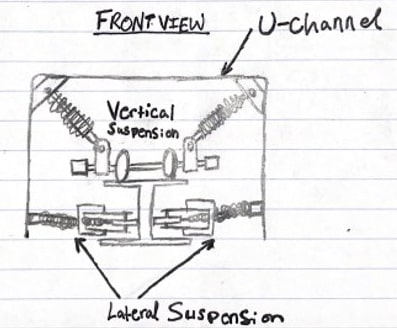 FRONT VIEW
U-Channel
Vertical
Suspension
Lateral Suspension